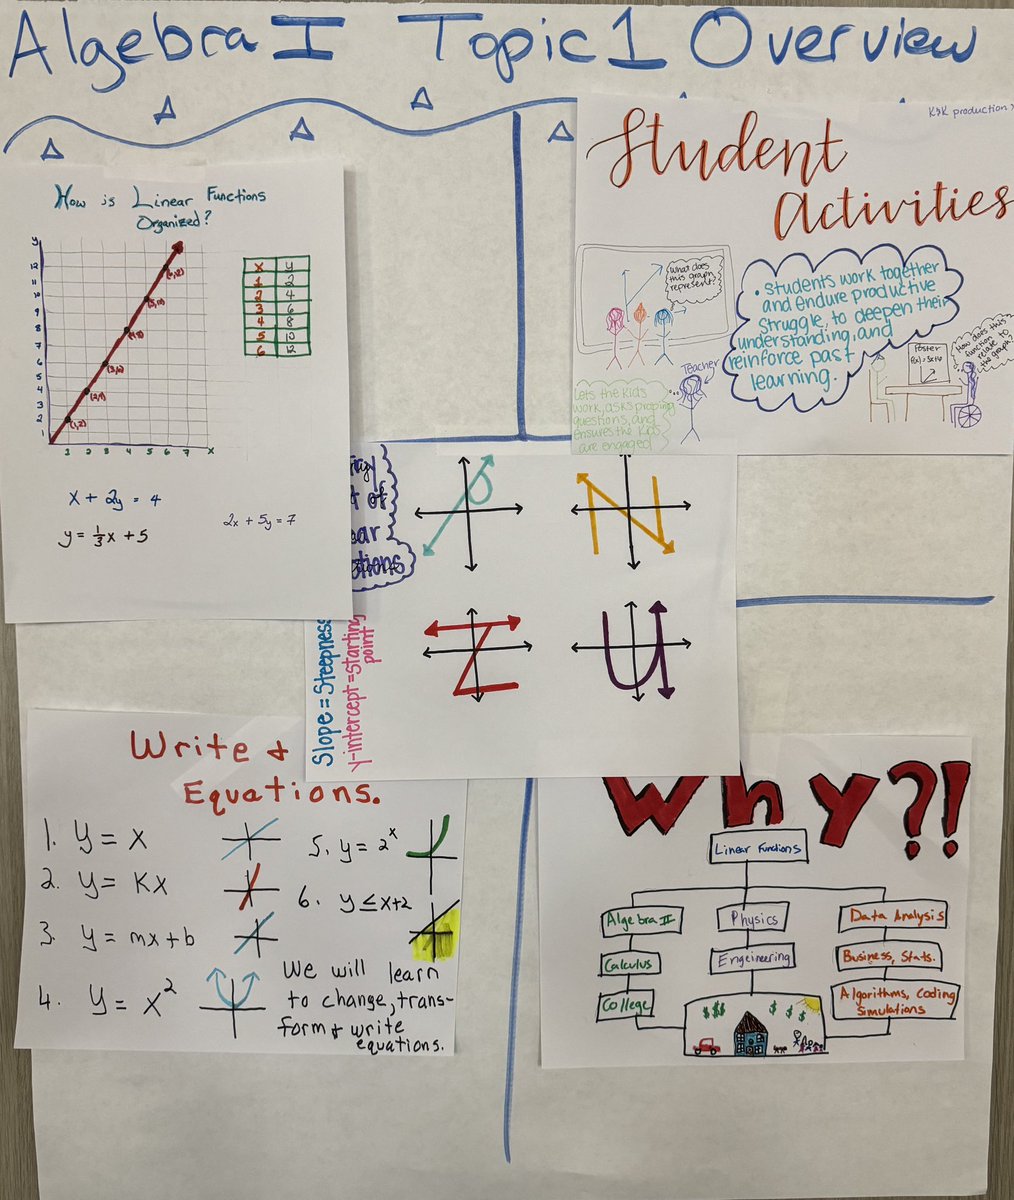 Algebra I Topic 1 Overview
How is Linear Functions
Organized?
y
12
11
10
9
8
7
6
5
4
3
2
1
(6,12)
(5,10)
(4,8)
(3,6)
(2,4)
(1,2)
1 2 3 4 5 6 7 x
x y
1 2
2 4
3 6
4 8
5 10
6 12
x + 2y = 4
y = 1/3x + 5
2x + 5y = 7
K&K production
Student
Activities
What does
this graph
represent?
• Students work together
and endure productive
struggle, to deepen their
understanding, and
reinforce past
learning.
Teacher
Lets the kids
work, asks proping
questions, and
ensures the kids
are engaged
Poster
How does this
function
relate to
the graph?
of
ear
Slope = Steepness
Y-intercept = starting
point
Write +
Equations.
1. y = x
2. y = Kx
3. y = mx + b
4. y = x²
5. y = 2ˣ
6. y ≤ x+2
We will learn
to change, trans-
form + write
equations.
Why?!
Linear Functions
Algebra II
Calculus
College
Physics
Engeineering
Data Analysis
Business, Stats.
Algorithms, Coding
Simulations
$$$ $ $ $